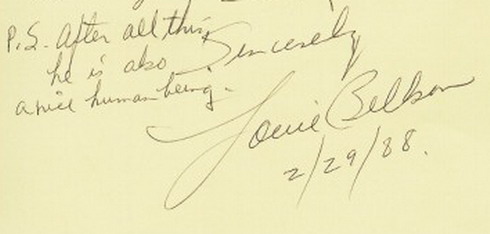 P.S. After all this,
he is also
a nice human being.
Sincerely
Louie Bellson
2/29/88.